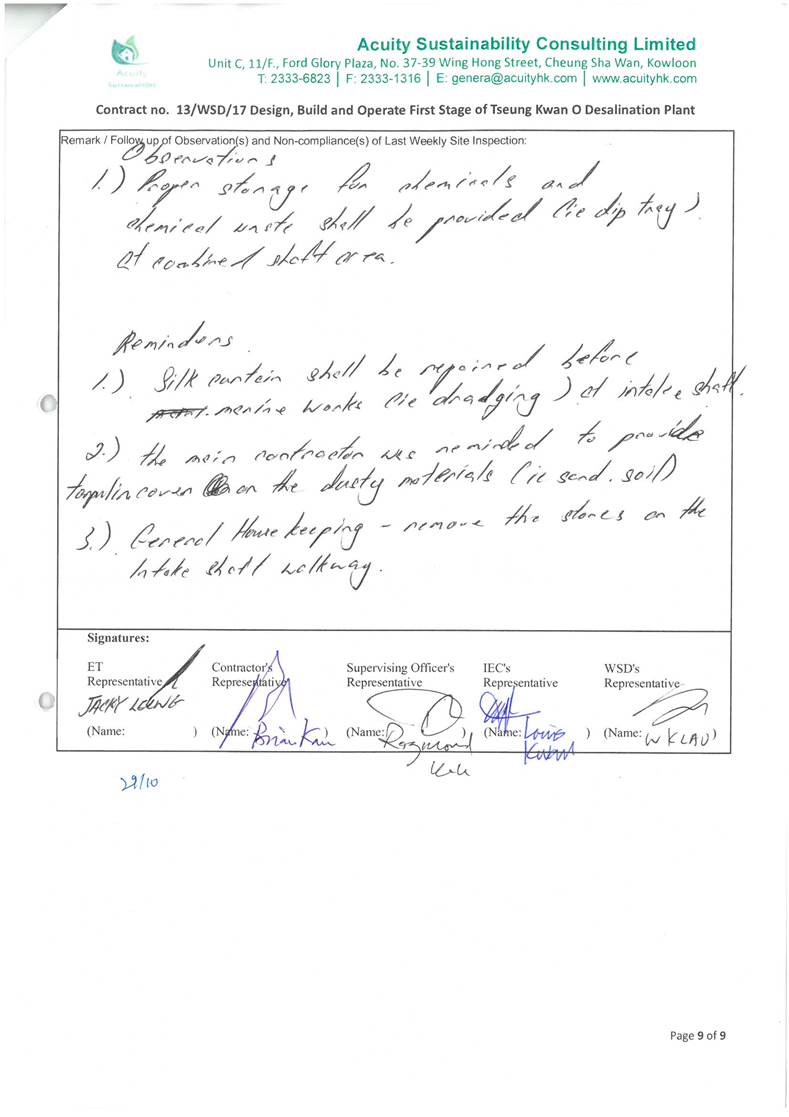 Acuity
Sustainability
Acuity Sustainability Consulting Limited
Unit C, 11/F., Ford Glory Plaza, No. 37-39 Wing Hong Street, Cheung Sha Wan, Kowloon
T: 2333-6823 | F: 2333-1316 | E: genera@acuityhk.com | www.acuityhk.com
Contract no. 13/WSD/17 Design, Build and Operate First Stage of Tseung Kwan O Desalination Plant
Remark / Follow up of Observation(s) and Non-compliance(s) of Last Weekly Site Inspection:
Observations
1.) Proper storage for chemicals and
chemical waste shall be provided (ie dip tray)
at combined shaft area.
Reminders
1.) Silk curtain shall be repaired before
marine works (ie dradging) at intake shaft.
2.) the main contractor was reminded to provide
tarpulin cover on the dusty materials (ie sand. soil)
3.) General House keeping - remove the stones on the
Intake shaft walkway.
Signatures:
ET Representative
Contractor's Representative
Supervising Officer's Representative
IEC's Representative
WSD's Representative
JACKY LEUNG
(Name: )
(Name: Brian Kan)
(Name: Raymond)
(Name: Louis Kwan)
(Name: W K LAU)
29/10
Page 9 of 9